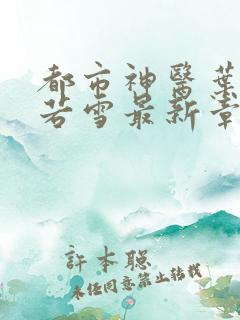 都市神醫葉
若雪最新章
許本聰
未任同意禁止转载